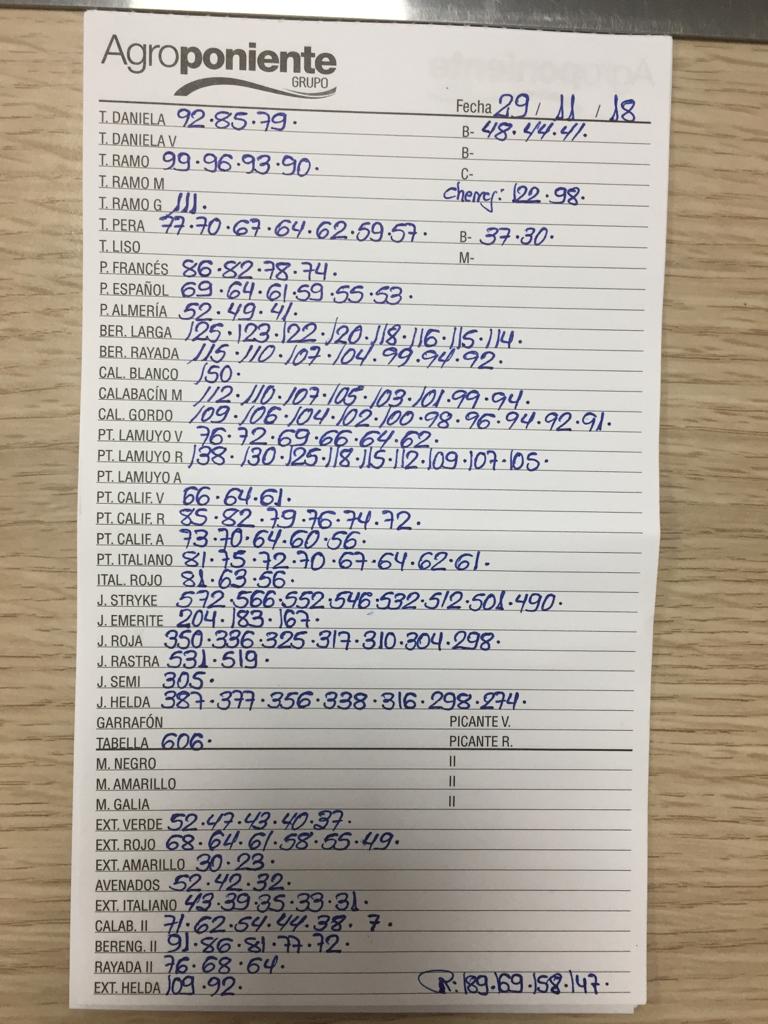 Agroponiente
GRUPO
Fecha 29 / 11 / 18
T. DANIELA 92·85·79· B- 48·44·41·
T. DANIELA V B-
T. RAMO 99·96·93·90· C-
T. RAMO M Cherry: 122·98·
T. RAMO G 111·
T. PERA 77·70·67·64·62·59·57· B- 37·30·
T. LISO M-
P. FRANCÉS 86·82·78·74·
P. ESPAÑOL 69·64·61·59·55·53·
P. ALMERÍA 52·49·41·
BER. LARGA 125·123·122·120·118·116·115·114·
BER. RAYADA 115·110·107·104·99·94·92·
CAL. BLANCO 150·
CALABACÍN M 112·110·107·105·103·101·99·94·
CAL. GORDO 109·106·104·102·100·98·96·94·92·91·
PT. LAMUYO V 76·72·69·66·64·62·
PT. LAMUYO R 138·130·125·118·115·112·109·107·105·
PT. LAMUYO A
PT. CALIF. V 66·64·61·
PT. CALIF. R 85·82·79·76·74·72·
PT. CALIF. A 73·70·64·60·56·
PT. ITALIANO 81·75·72·70·67·64·62·61·
ITAL. ROJO 81·63·56·
J. STRYKE 572·566·552·546·532·512·501·490·
J. EMERITE 204·183·167·
J. ROJA 350·336·325·317·310·304·298·
J. RASTRA 531·519·
J. SEMI 305·
J. HELDA 387·377·356·338·316·298·274·
GARRAFÓN PICANTE V.
TABELLA 606· PICANTE R.
M. NEGRO II
M. AMARILLO II
M. GALIA II
EXT. VERDE 52·47·43·40·37·
EXT. ROJO 68·64·61·58·55·49·
EXT. AMARILLO 30·23·
AVENADOS 52·42·32·
EXT. ITALIANO 43·39·35·33·31·
CALAB. II 71·62·54·44·38· 7·
BERENG. II 91·86·81·77·72·
RAYADA II 76·68·64·
EXT. HELDA 109·92· R: 189·169·158·147·